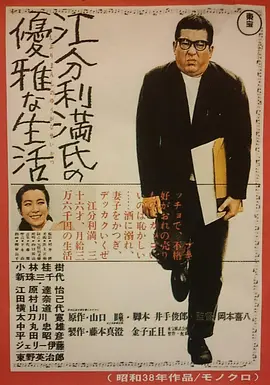 江分利満氏の
優雅な生活
東宝
ブキ
ッチョで、不格
好がおれの売り
ものなんだから
の恥かしい
……酒に溺れ
妻子をかつぎ、
デッカクいくぜ
江分利満、三
十六才、月給三
万六千円の生活
小林桂樹
新珠三千代
江原達怡
田村奈己
横山道代
太刀川寛
中丸忠雄
平田昭彦
ジェリー伊藤
東野英治郎
原作・山口瞳・脚本 井手俊郎
監督 岡本喜八
製作・藤本真澄 金子正且
(昭和38年作品/モノクロ)